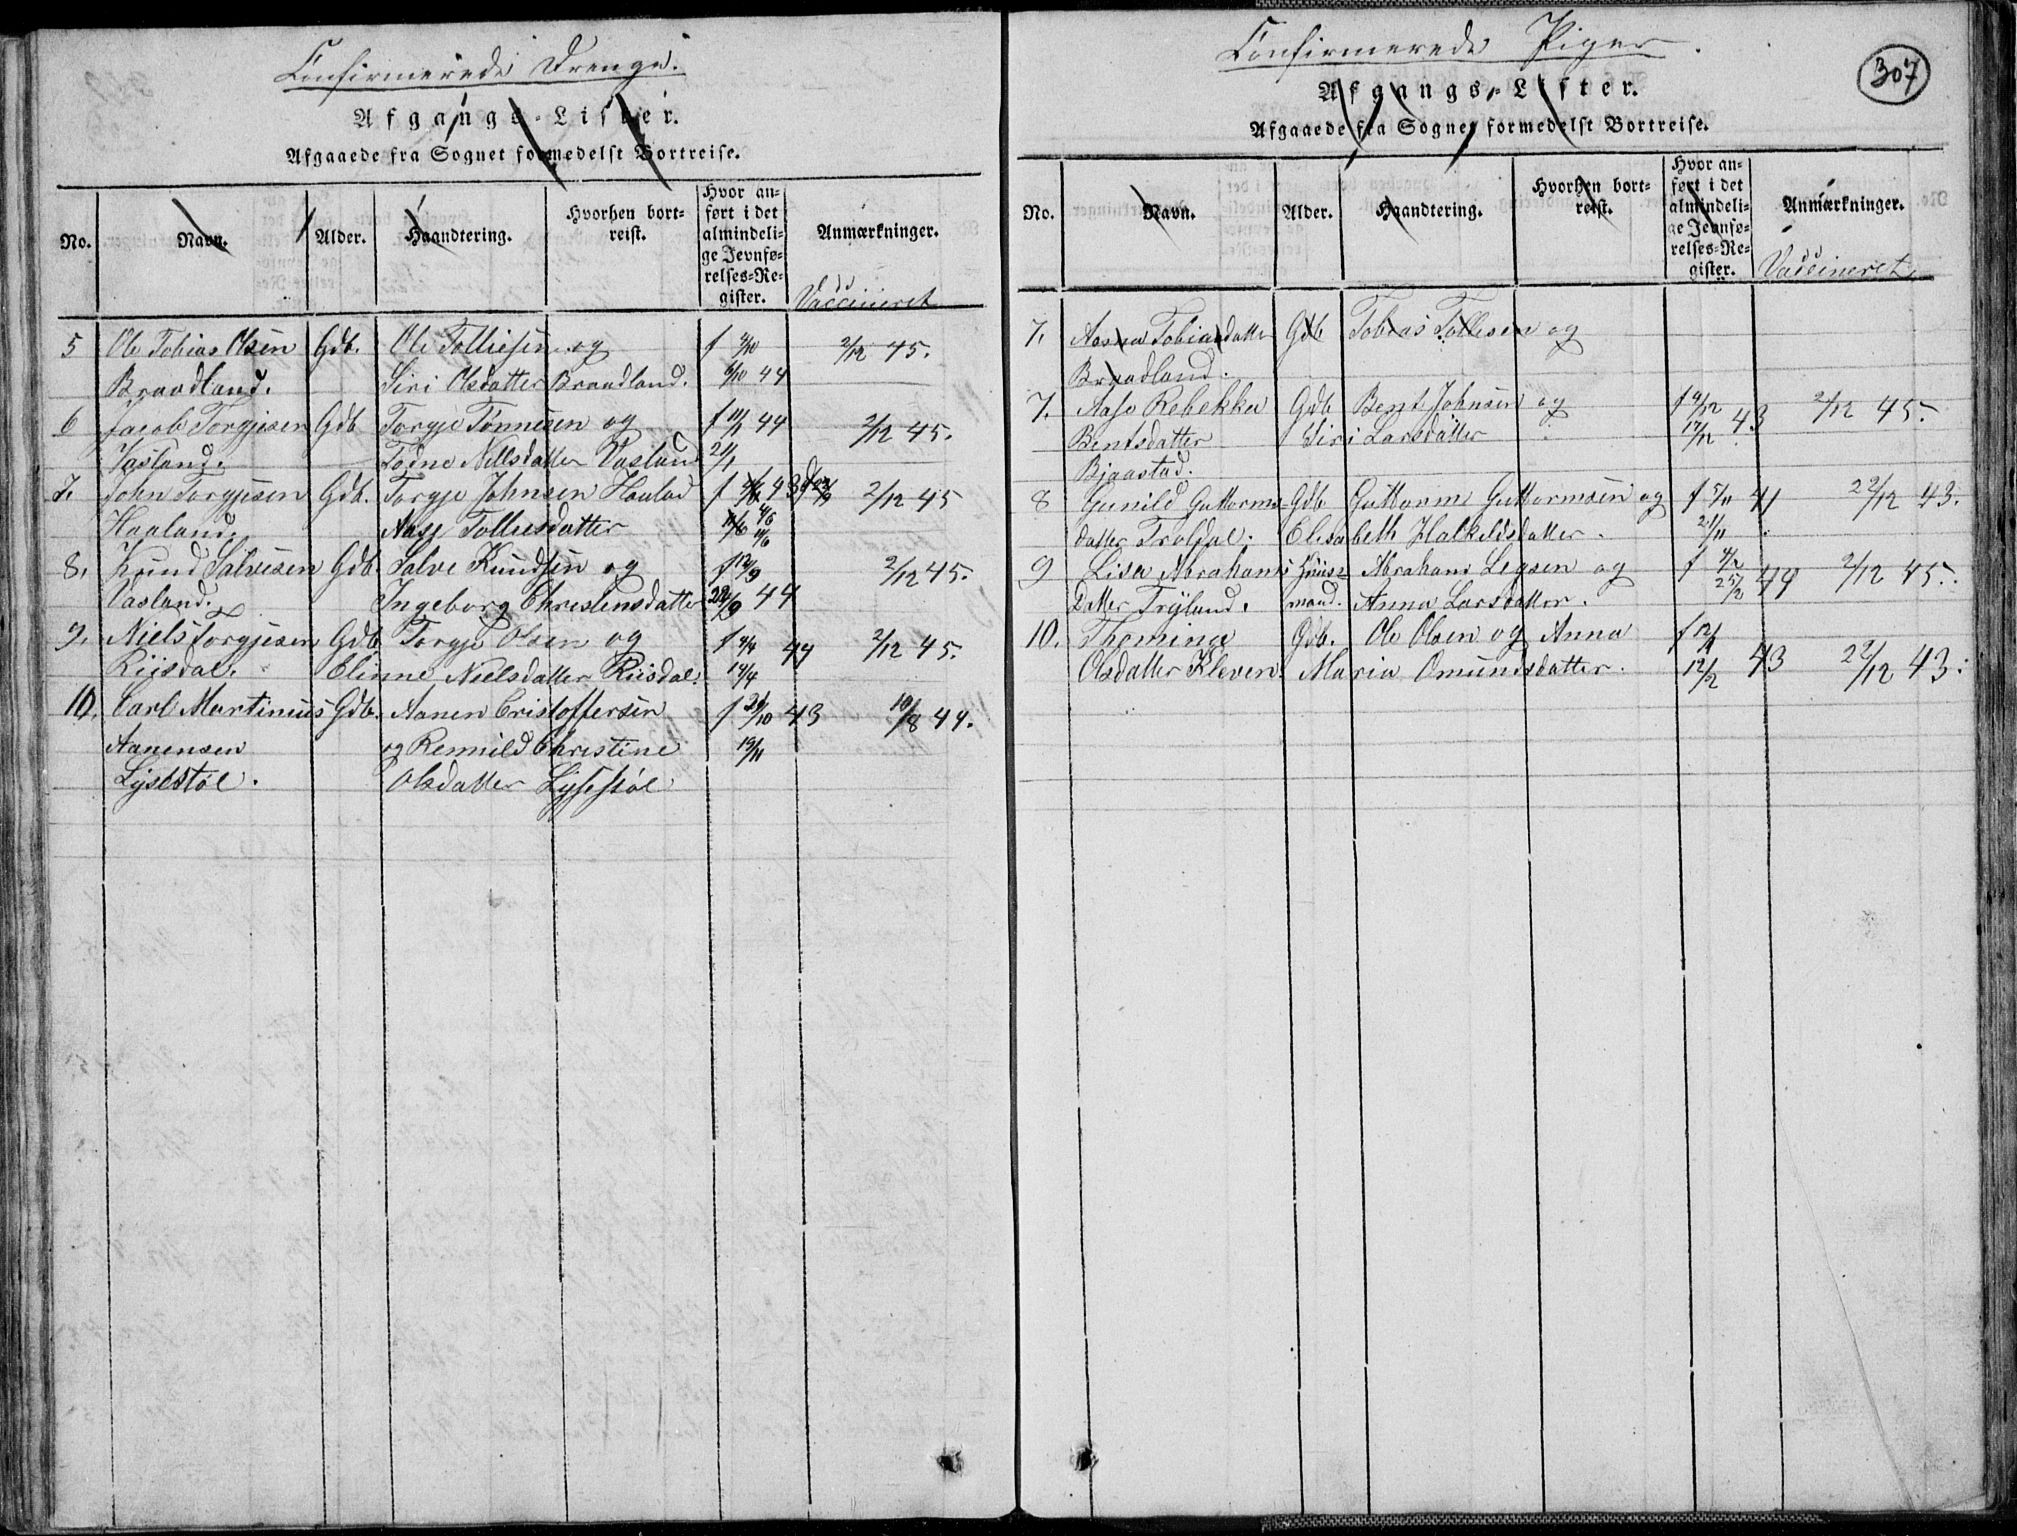 Confirmerede Drenge.
Afgangs-Lister.
Afgaaede fra Sognet formedelst Bortreise.
No. Navn. Alder. Haandtering. Hvorhen bortreist. Hvor anført i det almindelige Jevnførelses-Register. Anmærkninger.
Vaccineret
5 Ole Tobias Olsen Gdb. Ole Tolliesen og f 2/12 45.
Braadland. Siri Olsdatter Braadland. 6/10 44
6 Jacob Torgjesen Gdb Torgje Tønnesen og f 11/1 44 2/12 45.
Vasland. Todne Nillsdatter Vasland 21/1
7. John Torgjesen Gdb. Torgje Johnsen Haalad f 43 2/12 45
Haaland. Aase Tolliesdatter 11/6
8. Knud Salvesen Gdb. Salve Knudsen og f 12/9 2/12 45.
Vasland. Ingeborg Christensdatter 22/9 44
9. Niels Torgjesen Gdb Torgje Olsen og f 4/4 44 2/12 45.
Riisdal. Elinne Nielsdatter Riisdal. 14/4
10. Carl Martinius Gdb. Aanen Cristoffersen f 21/10 43 10/8 44.
Aanensen og Remnild Christine 19/11
Lysestøl. Olsdatter Lysestøl
Confirmerede Piger.
307
Afgangs-Lister.
Afgaaede fra Sognet formedelst Bortreise.
No. Navn. Alder. Haandtering. Hvorhen bortreist. Hvor anført i det almindelige Jevnførelses-Register. Anmærkninger.
Vaccineret.
7. Aasna Tobiasdatter Gdb Tobias Tollesen og
Braadland.
7. Aase Rebekka Gdb Bent Johnsen og f 4/12 43 2/12 45.
Bentsdatter Siri Larsdatter 17/12
Bjaastad.
8 Gunild Guttorms- Gdb Guttorm Guttormsen og f 5/11 41 22/12 43.
datter Troldal. Elisabeth Halkildsdatter. 21/11
9 Lisa Abrahams Huus- Abraham Legsen og f 4/2 44 2/12 45.
Datter Tryland. mand. Anna Larsdatter. 25/2
10. Themina Gdb. Ole Olsen og Anna f 12/1 43 22/12 43.
Olsdatter Kleven. Maria Omundsdatter. 12/2